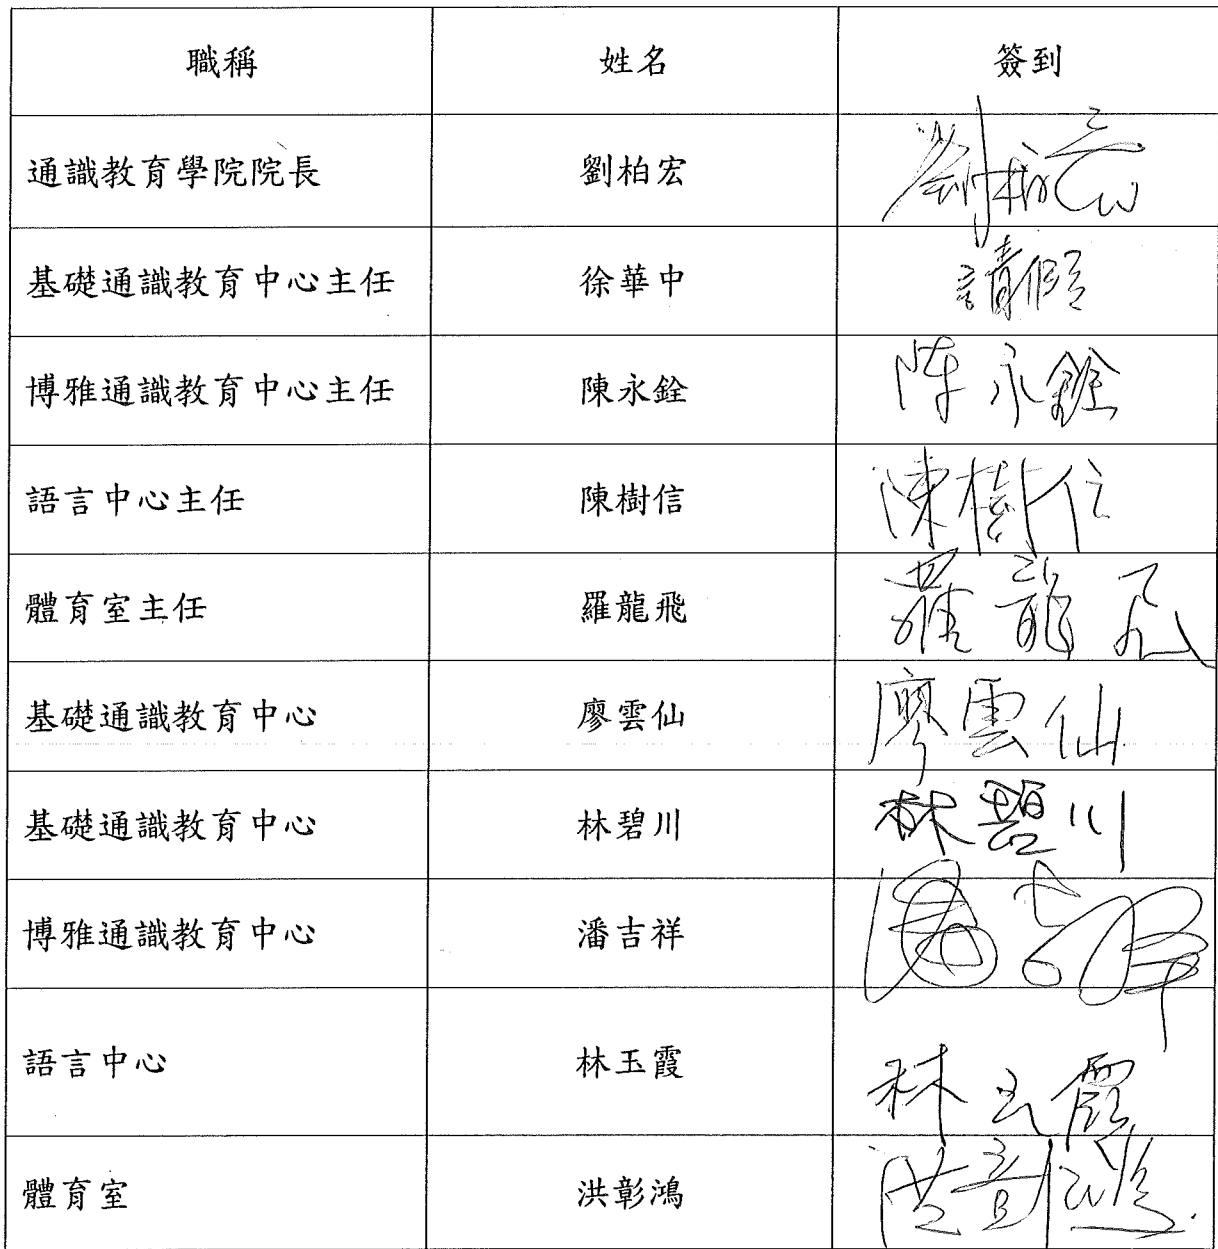 職稱 姓名 簽到
通識教育學院院長 劉柏宏 劉柏宏
基礎通識教育中心主任 徐華中 請假
博雅通識教育中心主任 陳永銓 陈永銓
語言中心主任 陳樹信 陳樹信
體育室主任 羅龍飛 羅龍飛
基礎通識教育中心 廖雲仙 廖雲仙
基礎通識教育中心 林碧川 林碧川
博雅通識教育中心 潘吉祥 潘吉祥
語言中心 林玉霞 林玉霞
體育室 洪彰鴻 洪彰鴻